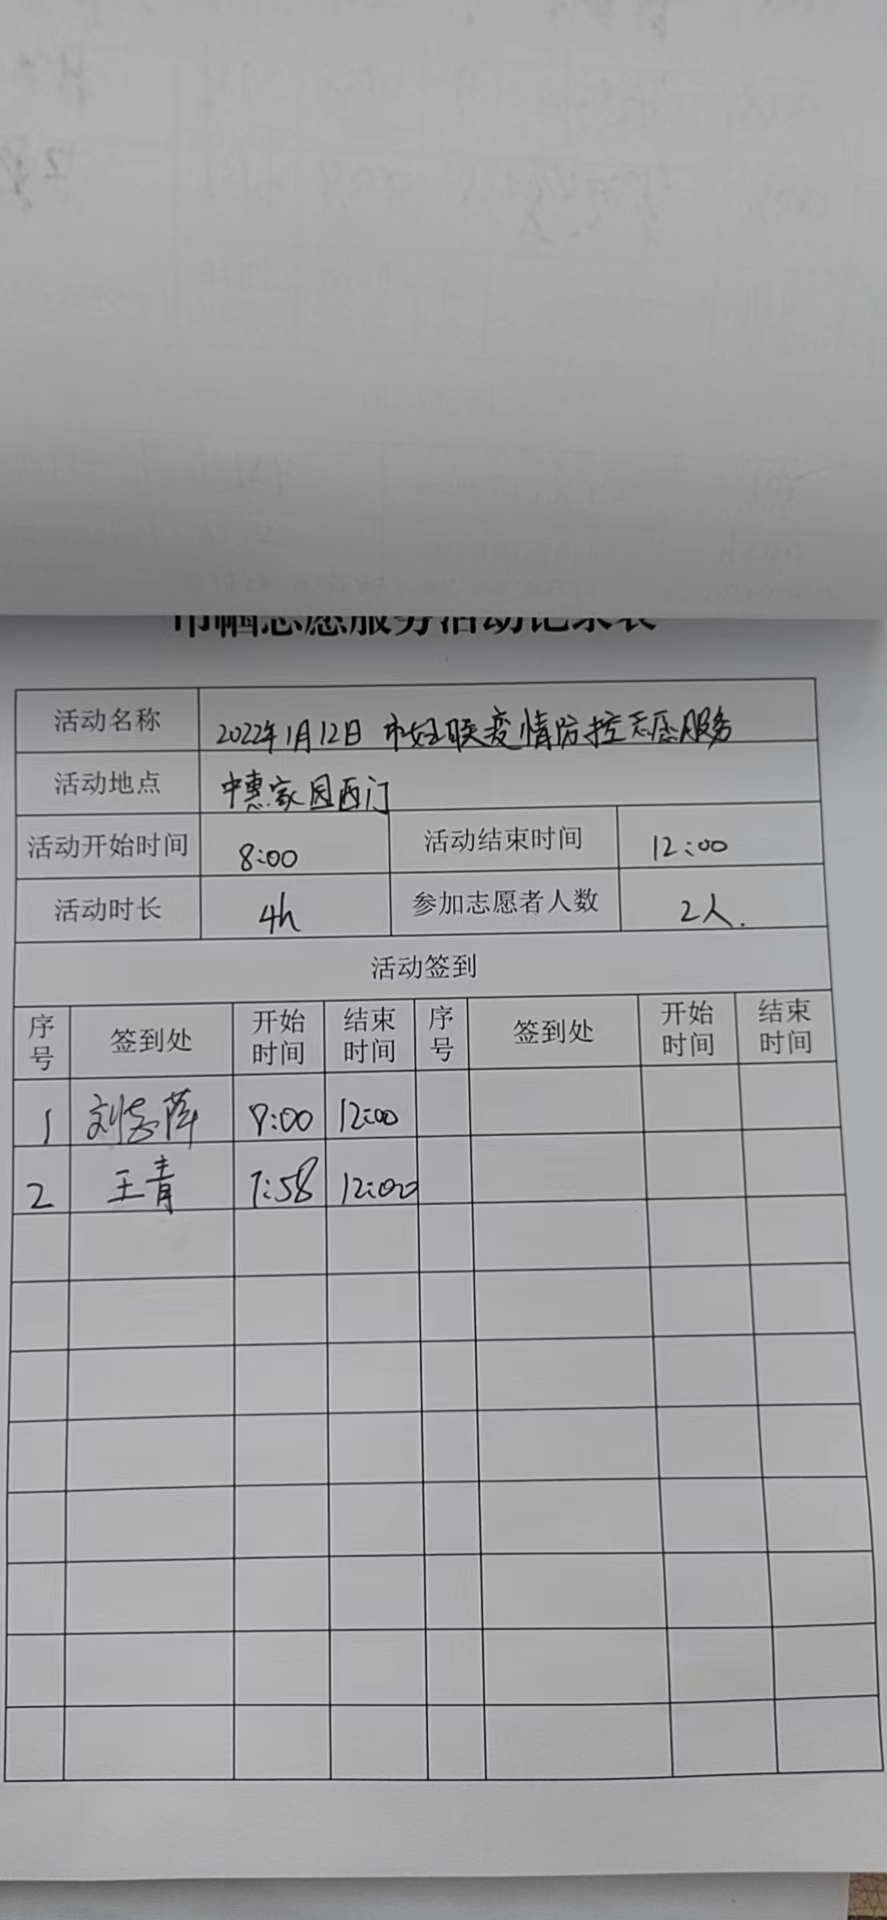 巾帼志愿服务活动记录表
活动名称 2022年1月12日 市妇联疫情防控志愿服务
活动地点 中惠家园西门
活动开始时间 8:00 活动结束时间 12:00
活动时长 4h 参加志愿者人数 2人.
活动签到
序号 签到处 开始时间 结束时间 序号 签到处 开始时间 结束时间
1 刘志萍 8:00 12:00
2 王青 7:58 12:00